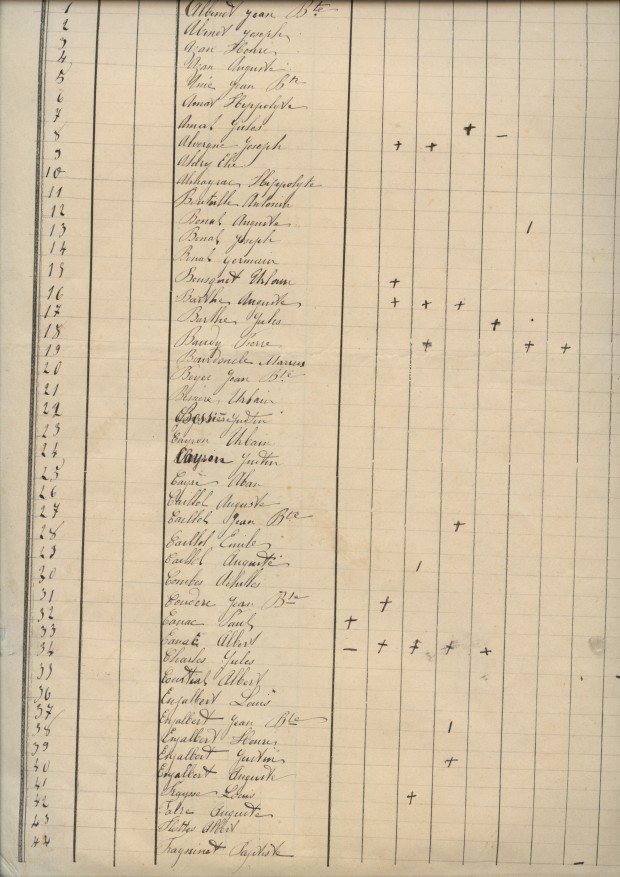 1 Albinet Jean Bte
2 Abinet Joseph
3 Azan Honoré
4 Azan Auguste
5 Jean Bte
6 Amat Hippolyte
7 Amat Jules +
8 Alvergne Joseph + + —
9 Aldry Elie
10 Hippolyte
11 Antonin
12 Bonal Auguste
13 Bonal Joseph 1
14 Bonal Germain
15 Bousquet Urbain +
16 Barthe Auguste + + +
17 Barthe Jules +
18 Baudy Pierre + + +
19 Marius
20 Jean Bte
21 Urbain
22 Justin
23 Cayron Urbain
24 Cayron Justin
25 Cayre
26 Caillol Auguste
27 Caillol Jean Bte +
28 Caillol Emile
29 Caillol Auguste 1
30 Combes Achilles
31 Couderc Jean Bte +
32 Canac Paul +
33 Canac Albert — + + + +
34 Charles Jules
35 Albert
36 Enjalbert Louis
37 Enjalbert Jean Bte
38 Enjalbert Henri 1
39 Enjalbert Justin +
40 Enjalbert Auguste
41 Louis +
42 Fabre Auguste
43 Flottes Albert
44 Fraysinet Baptiste